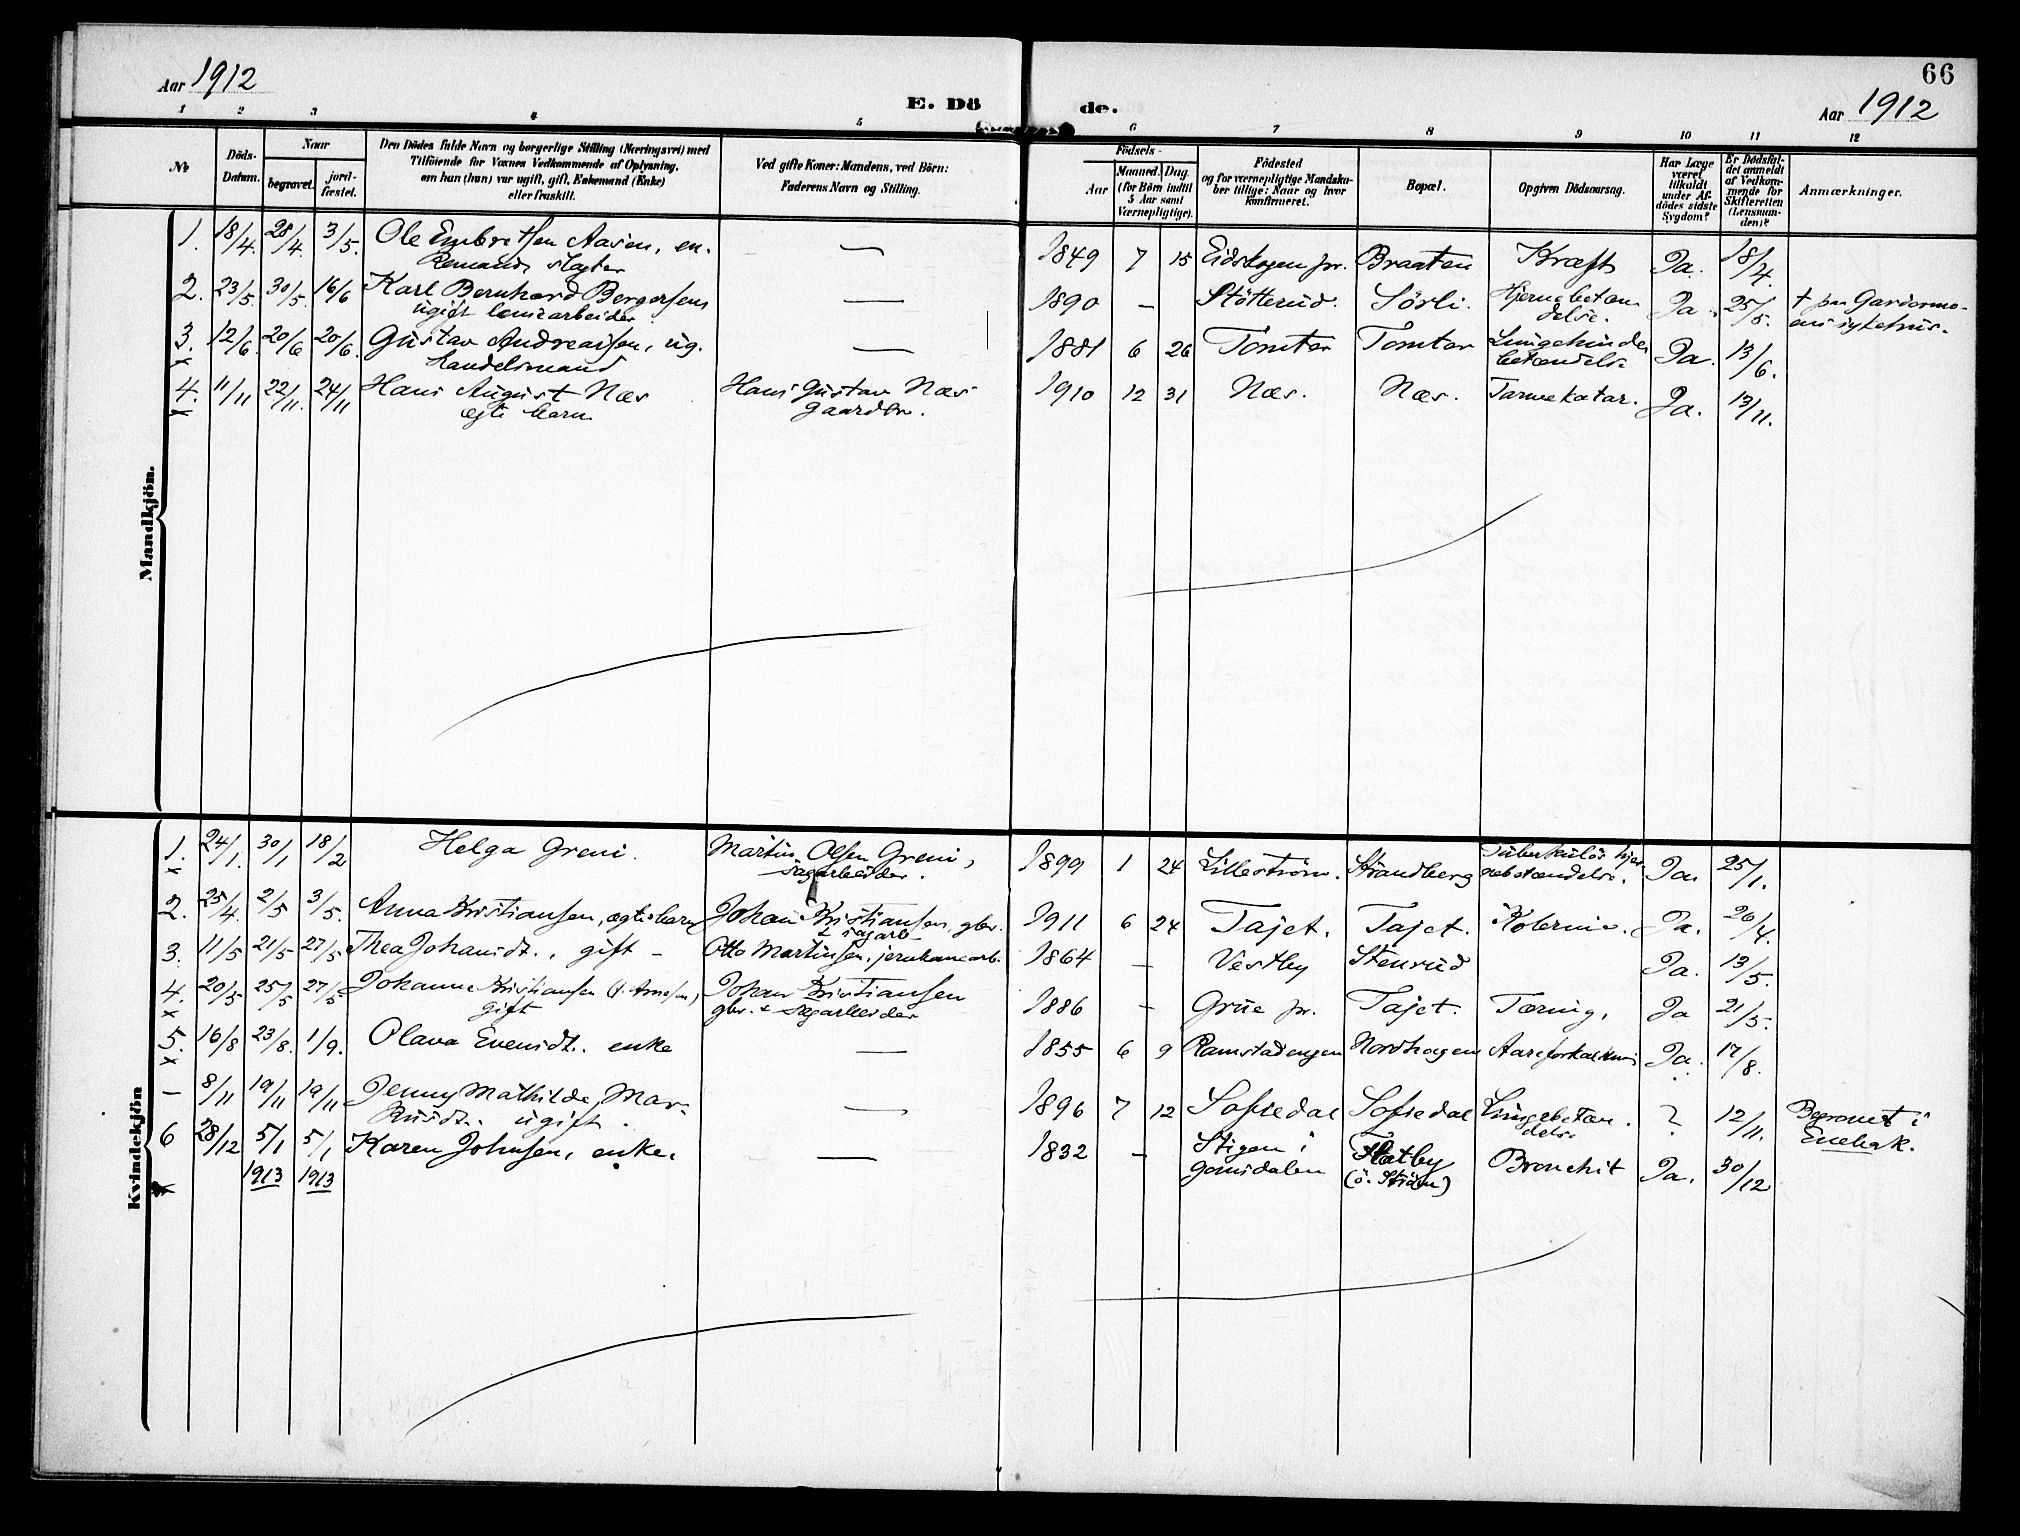 66
Aar 1912
E. Dö de.
Aar 1912
1 2 3 4 5 6 7 8 9 10 11 12
No
Döds-
Datum.
Naar
begravet.
jord-
fæstet.
Den Dödes fulde Navn og borgerlige Stilling (Næringsvei) med
Tilföiende for Voxnes Vedkommende af Oplysning,
om han (hun) var ugift, gift, Enkemand (Enke)
eller fraskilt.
Ved gifte Koner: Mandens, ved Börn:
Faderens Navn og Stilling.
Födsels-
Aar
Maaned. Dag.
(for Börn indtil
5 Aar samt
Værnepligtige).
Födested
og for værnepligtige Mandska-
ber tillige: Naar og hvor
konfirmeret.
Bopæl.
Opgiven Dödsaarsag.
Har Læge
været
tilkaldt
under Af-
dödes sidste
Sygdom?
Er Dödsfal-
det anmeldt
af Vedkom-
mende for
Skifteretten
(Lensman-
den)?
Anmærkninger.
Mandkjön.
1. 18/4. 28/4. 3/5. Ole Embretsen Aasen, en- — 1849 7 15 Eidskogen pr. Braaten Kræft Ja. 18/4.
kemand, slagter
2. 23/5. 30/5. 16/6 Karl Bernhard Bergersen — 1890 — Stötterud. Sörli. Hjernebetæn Ja. 25/5. † paa Gardermo-
ugift, delse. ens sykehus.
3. 12/6. 20/6 20/6. Gustav Andreassen, ug. — 1881 6 26 Tomter Tomter Lungehinde Ja. 13/6.
x handelsmand betændelse
4. 11/11 22/11. 24/11 Hans August Næs Hans Gustav Næs 1910 12 31 Næs. Næs. Tarmekatar. Ja. 13/11.
x egte barn gaardbr.
Kvindekjön
1. 24/1. 30/1 18/2 Helga Greni. Martin Olsen Greni, 1899 1 24 Lilleström. Strandberg Tuberkulös hjer- Ja 25/1.
x sagarbeider. nebetændelse.
2. 25/4. 2/5 3/5. Anna Kristiansen, ægte barn Johan Kristiansen, gbr. 1911 6 24 Tajet. Tajet. Kolerine. Ja. 26/4.
+ sagarb.
3. 11/5 21/5 27/5 Thea Johansdt., gift – Otto Martinsen, jernbanearb. 1864 — Vestby Stenrud Ja. 13/5.
4. 20/5 25/5 27/5 Johanne Kristiansen (f. Arnesen) Johan Kristiansen 1886 — Grue pr. Tajet. Tæring. Ja 21/5.
x gift gbr. + sagarbeider
5. 16/8 23/8. 1/9. Olava Evensdt. enke — 1855 6 9 Ramstadengen Nordhagen Aareforkalkning Ja. 17/8.
x
— 8/11 19/11 19/11 Jenny Mathilde Mar- — 1896 7 12 Sofiedal Sofiedal Lungebetæn- ? 12/11. Begravet i
kusdt. ugift. delse Enebak.
6 28/12 5/1 5/1 Karen Johnsen, enke. — 1832 — Stigen i Flatby Bronchit Ja. 30/12
x 1913 1913 Gansdalen